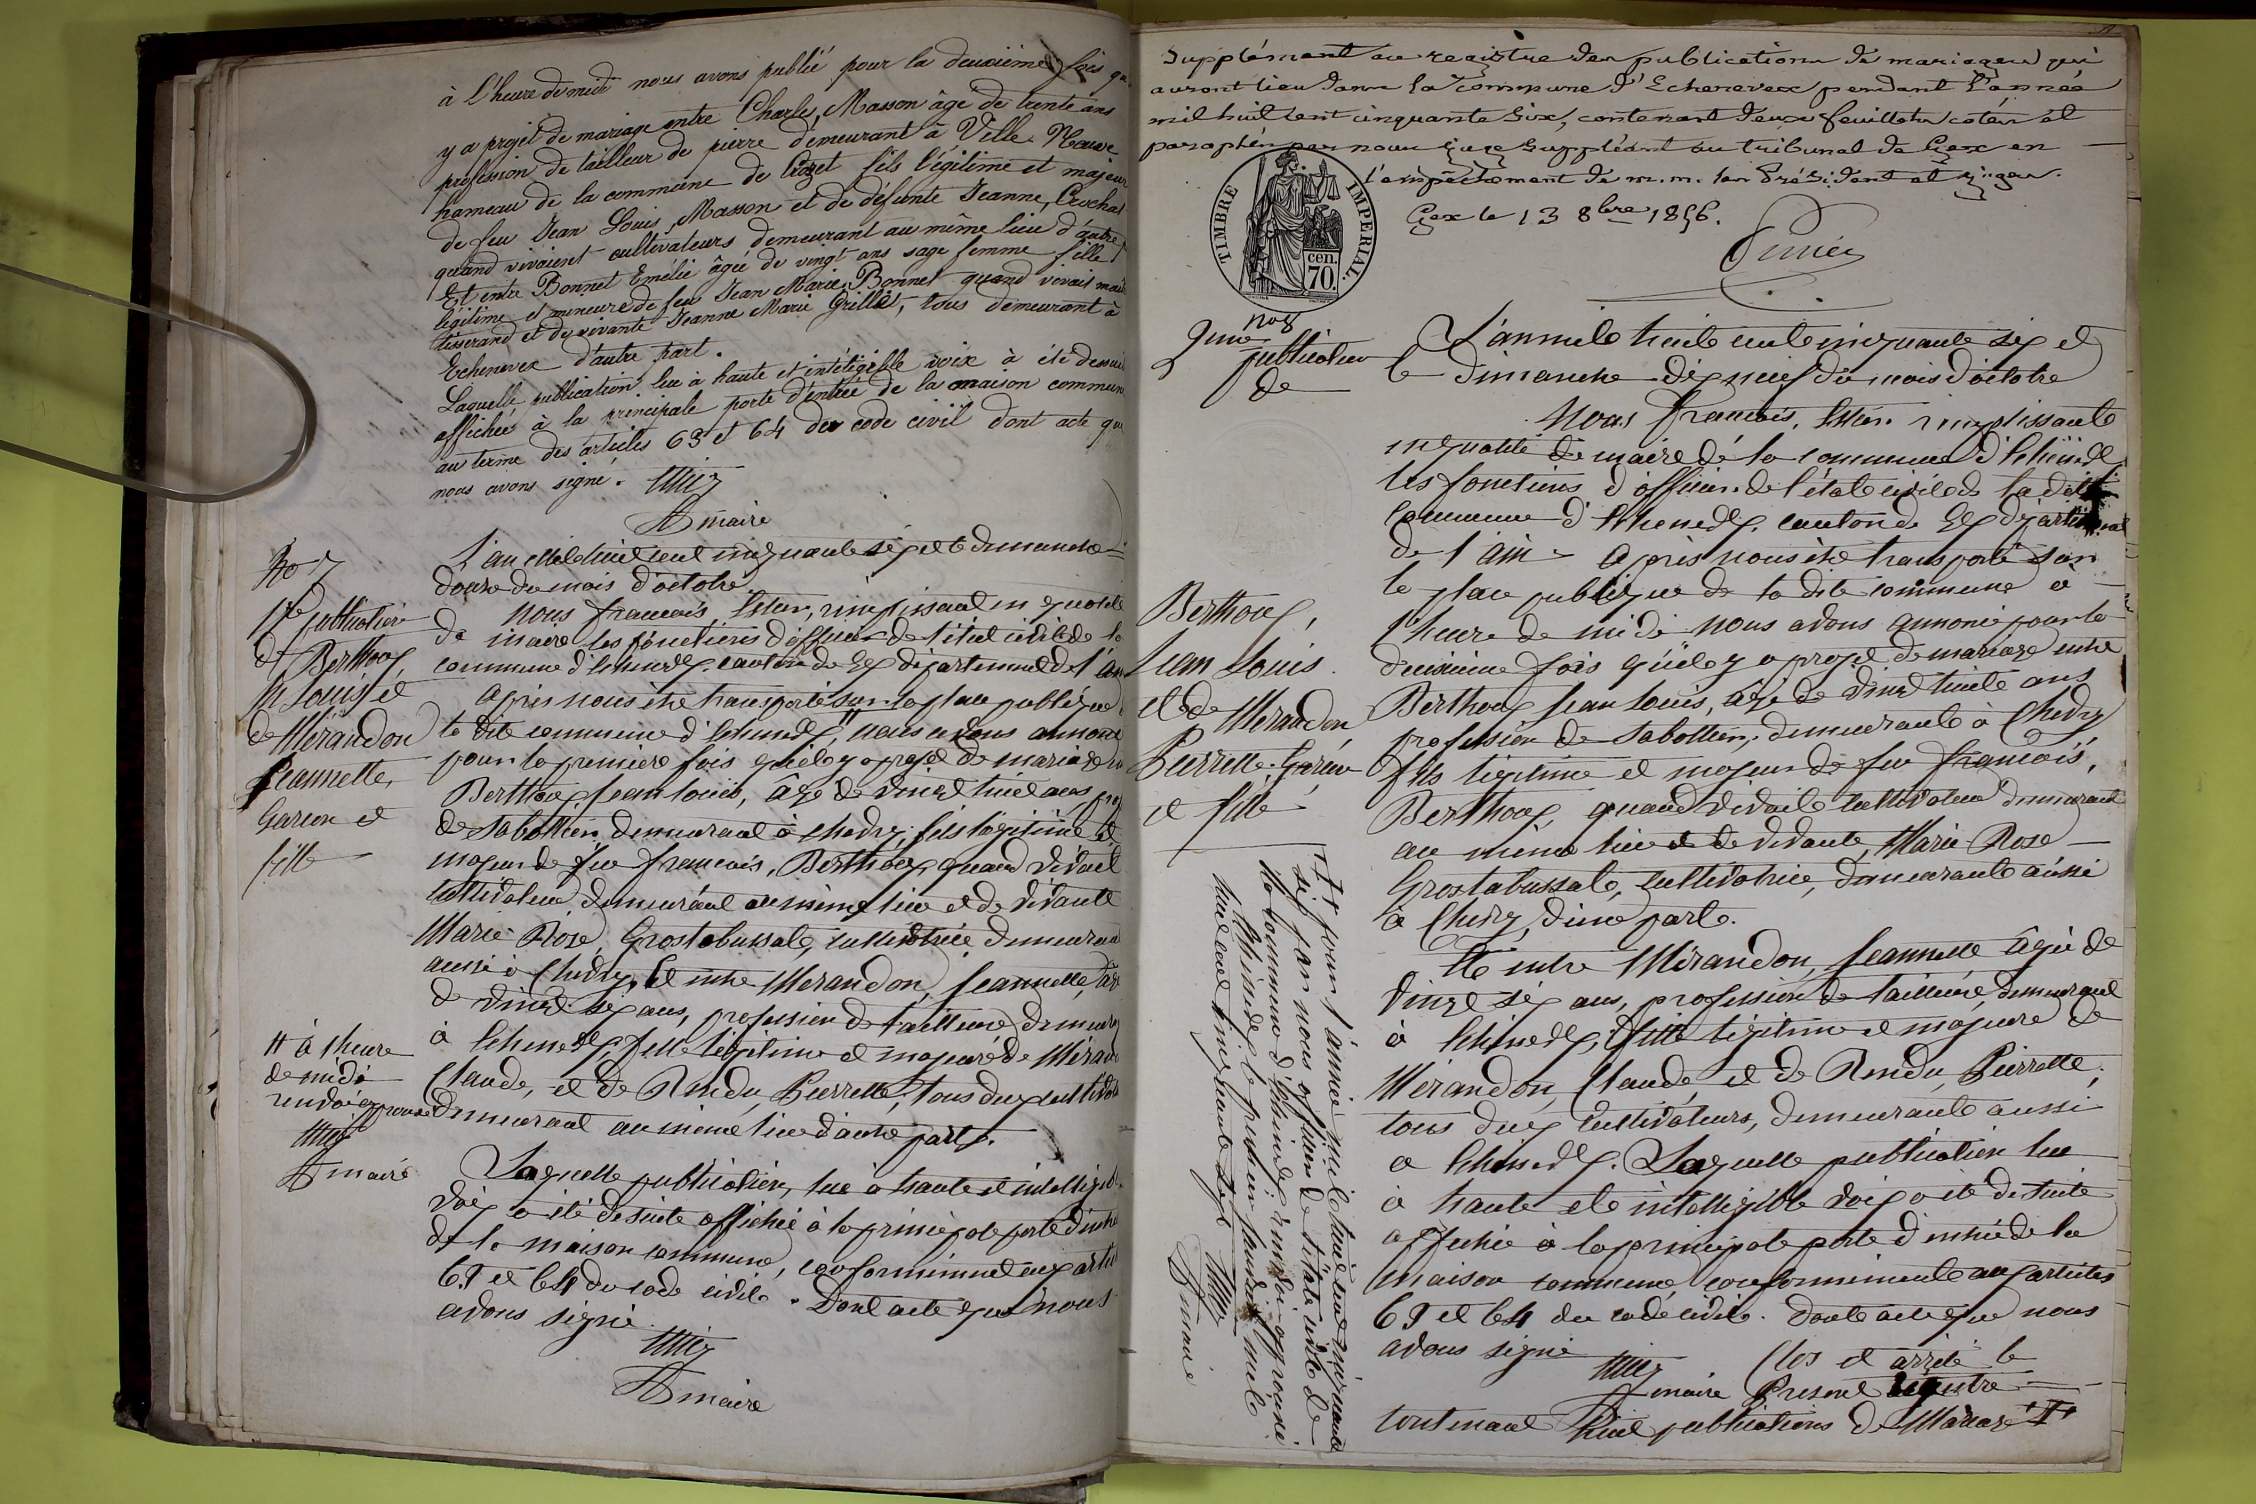 à l'heure de midi nous avons publié pour la deuxième fois qu
y a projet de mariage entre Charles, Masson âgé de trente ans
profession de tailleur de pierre demeurant à Ville Neuve
hameau de la commune de fils légitime et majeur
de feu Jean Louis, Masson et de défunte Jeanne, Crochat
quand vivaient cultivateurs demeurant au même lieu d'autre
Et entre Bonnet Emélie âgée de vingt ans sage femme fille
légitime et mineure de feu Jean Marie, Bonnet quand vivait
tisserand et de vivante Jeanne Marie Grillet, tous demeurant à
Echenevex d'autre part.
Laquelle publication lue à haute et intéligible voix à été de
affichée à la principale porte d'entrée de la maison commune
au terme des articles 63 et 64 du code civil dont acte que
nous avons signé.
maire
No 7
1re publication
de Berthoux,
Jn Louis et
de Mérandon
Jeannette,
Garcon et
fille
L'an mil huit cent cinquante six et le dimanche
douze du mois d'octobre
Nous françois, remplissant en qualité
de maire les fonctions d'officier de l'état civil de la
commune d'Echenevex canton de Gex département de l'ain
après nous être transporté sur la place publique
la dite commune d'Echenevex, # nous avons annoncé
pour la premiere fois qu'il y a projet de mariage
Berthoux Jean Louis, âgé de vingt huit ans, prof
de Sabottier, demeurant à chevry, fils légitime et
majeur de feu françois, Berthoux, quand vivait
cultivateur demeurant au même lieu et de vivante
Marie Rose, Grostabussat, cultivatrice demeurant
aussi à Chevry, Et entre Mérandon, Jeannette, âgé
de vingt six ans, profession de tailleuse demeurant
à Echenevex, fille légitime et majeure de Mérandon
Claude, et de Rendu, Pierrette, tous deux cultivat
demeurant au même lieu d'autre part.
# à l'heure
de midi
renvoi approuvé
maire
Laquelle publication, lue à haute et intelligible
voix a été de suite affichée à la principale porte d'entré
de la maison commune, conformément aux articl
63 et 64 du code civil. Dont acte que nous
avons signé
maire
Supplément au registre des publications de mariages qui
auront lieu dans la Commune d'Echenevex pendant l'année
mil huit cent cinquante Six, contenant deux feuillets cotés et
paraphés par nous juge suppléant au tribunal de Gex en
l'empêchement de m.m. les Président et juges.
Gex le 13 8bre 1856.
TIMBRE IMPÉRIAL.
cen.
70.
No 8
2me
publication
de
Berthoux,
Jean Louis.
et de Mérandon
Pierrette. Garcon
et fille
L'an mil huit cent cinquante six et
le dimanche dix neuf du mois d'octobre
Nous françois, remplissant
en qualité de maire de la commune d'Echenevex
les fonctions d'officier de l'état civil de la dite
Commune d'Echenevex, canton de Gex département
de l'ain - après nous être transporté sur
la place publique de la dite commune à
l'heure de midi nous avons annoncé pour la
deuxième fois qu'il y a projet de mariage entre
Berthoux Jean Louis, âgé de vingt huit ans
profession de Sabottier, demeurant à Chevry
fils légitime et majeur de feu françois,
Berthoux, quand vivait cultivateur demeurant
au même lieu et de vivante, Marie Rose
Grostabussat, cultivatrice, demeurant aussi
à Chevry, d'une part.
Et entre Mérandon, Jeannette âgée de
vingt six ans, profession de tailleuse, demeurant
à Echenevex, fille légitime et majeure de
Mérandon, Claude, et de Rendu, Pierrette,
tous deux cultivateurs, demeurant aussi
à Echenevex. Laquelle publication lue
à haute et intelligible voix a été de suite
affichée à la principale porte d'entrée de la
maison commune, conformément aux articles
63 et 64 du code civil. dont acte que nous
avons signé
maire
Clos et arrêté le
Present registre
contenant huit publications de Mariage
pour l'année mil huit cent cinquante
six par nous officier de l'état civil de
la commune d'Echenevex renvoi approuvé
à Echenevex le premier janvier mil
huit cent cinquante sept
maire